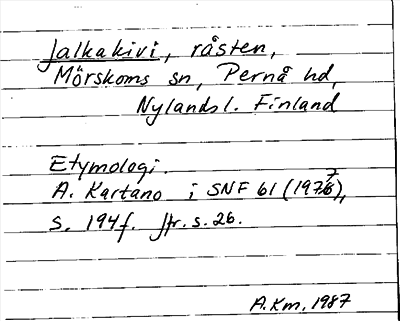 Jalkakivi, råsten,
Mörskoms sn, Pernå hd,
Nylandsl. Finland
Etymologi.
A. Kartano i SNF 61 (1977),
s. 194f. Jfr. s. 26.
A.Km, 1987